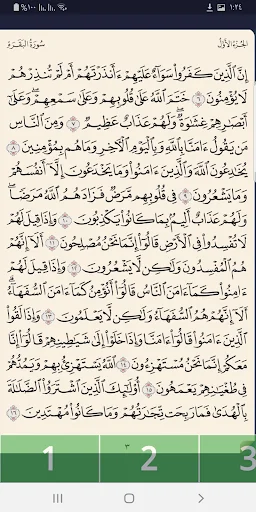 ١:٢٤ ٪١٠٠
سُورَةُ البَقَرَةِ الجُزْءُ الأَوَّلُ
إِنَّ ٱلَّذِينَ كَفَرُوا۟ سَوَآءٌ عَلَيْهِمْ ءَأَنذَرْتَهُمْ أَمْ لَمْ تُنذِرْهُمْ
لَا يُؤْمِنُونَ ٦ خَتَمَ ٱللَّهُ عَلَىٰ قُلُوبِهِمْ وَعَلَىٰ سَمْعِهِمْ ۖ وَعَلَىٰٓ
أَبْصَٰرِهِمْ غِشَٰوَةٌ ۖ وَلَهُمْ عَذَابٌ عَظِيمٌ ٧ وَمِنَ ٱلنَّاسِ
مَن يَقُولُ ءَامَنَّا بِٱللَّهِ وَبِٱلْيَوْمِ ٱلْءَاخِرِ وَمَا هُم بِمُؤْمِنِينَ ٨
يُخَٰدِعُونَ ٱللَّهَ وَٱلَّذِينَ ءَامَنُوا۟ وَمَا يَخْدَعُونَ إِلَّآ أَنفُسَهُمْ
وَمَا يَشْعُرُونَ ٩ فِى قُلُوبِهِم مَّرَضٌ فَزَادَهُمُ ٱللَّهُ مَرَضًا ۖ
وَلَهُمْ عَذَابٌ أَلِيمٌۢ بِمَا كَانُوا۟ يَكْذِبُونَ ١٠ وَإِذَا قِيلَ لَهُمْ
لَا تُفْسِدُوا۟ فِى ٱلْأَرْضِ قَالُوٓا۟ إِنَّمَا نَحْنُ مُصْلِحُونَ ١١ أَلَآ إِنَّهُمْ
هُمُ ٱلْمُفْسِدُونَ وَلَٰكِن لَّا يَشْعُرُونَ ١٢ وَإِذَا قِيلَ لَهُمْ
ءَامِنُوا۟ كَمَآ ءَامَنَ ٱلنَّاسُ قَالُوٓا۟ أَنُؤْمِنُ كَمَآ ءَامَنَ ٱلسُّفَهَآءُ ۗ
أَلَآ إِنَّهُمْ هُمُ ٱلسُّفَهَآءُ وَلَٰكِن لَّا يَعْلَمُونَ ١٣ وَإِذَا لَقُوا۟
ٱلَّذِينَ ءَامَنُوا۟ قَالُوٓا۟ ءَامَنَّا وَإِذَا خَلَوْا۟ إِلَىٰ شَيَٰطِينِهِمْ قَالُوٓا۟ إِنَّا
مَعَكُمْ إِنَّمَا نَحْنُ مُسْتَهْزِءُونَ ١٤ ٱللَّهُ يَسْتَهْزِئُ بِهِمْ وَيَمُدُّهُمْ
فِى طُغْيَٰنِهِمْ يَعْمَهُونَ ١٥ أُو۟لَٰٓئِكَ ٱلَّذِينَ ٱشْتَرَوُا۟ ٱلضَّلَٰلَةَ
بِٱلْهُدَىٰ فَمَا رَبِحَت تِّجَٰرَتُهُمْ وَمَا كَانُوا۟ مُهْتَدِينَ ١٦
٣
1 2 3